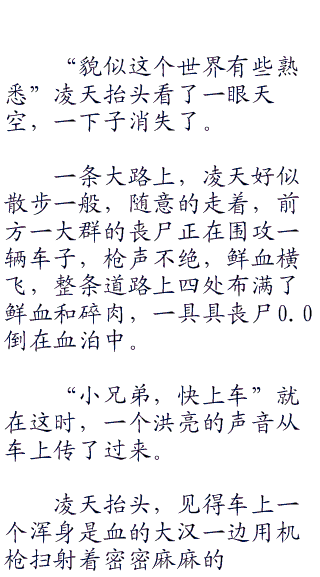 “貌似这个世界有些熟
悉”凌天抬头看了一眼天
空，一下子消失了。
一条大路上，凌天好似
散步一般，随意的走着，前
方一大群的丧尸正在围攻一
辆车子，枪声不绝，鲜血横
飞，整条道路上四处布满了
鲜血和碎肉，一具具丧尸0.0
倒在血泊中。
“小兄弟，快上车”就
在这时，一个洪亮的声音从
车上传了过来。
凌天抬头，见得车上一
个浑身是血的大汉一边用机
枪扫射着密密麻麻的